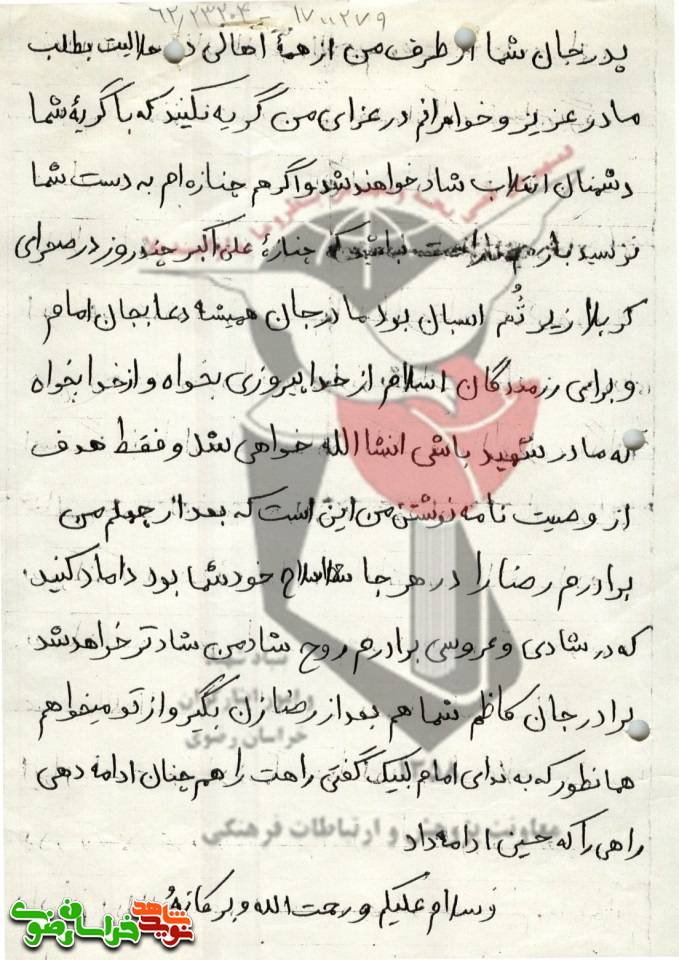 ۶۲/۲۳۲۰۴ ۱۷۰۰۲۷۹
پدر جان شما از طرف من از همهٔ اهالی ده حلالیت بطلب
مادر عزیز و خواهرانم در عزای من گریه نکنید که با گریهٔ شما
دشمنان انقلاب شاد خواهند شد و اگر هم جنازه ام به دست شما
نرسید باز هم ناراحت نباشید که جنازهٔ علی اکبر چند روز در صحرای
کربلا زیر سُم اسبان بود مادر جان همیشه دعا بجان امام
و برای رزمندگان اسلام از خدا پیروزی بخواه و از خدا بخواه
که مادر شهید باشی انشاالله خواهی شد و فقط هدف
از وصیت نامه نوشتن من این است که بعد از چهلم من
برادرم رضا را در هر جا صلاح خود شما بود داماد کنید
که در شادی و عروسی برادرم روح شاد من شادتر خواهد شد
برادر جان کاظم شما هم بعد از رضا زن بگیر و از تو میخواهم
همانطور که به ندای امام لبیک گفتی راهت را هم چنان ادامه دهی
راهی را که حسین ادامه داد
وسلام علیکم و رحمت الله و برکاتهٔ
بنیاد شهید
خراسان رضوی
معاونت پژوهش و ارتباطات فرهنگی
نوید شاهد
خراسان رضوی